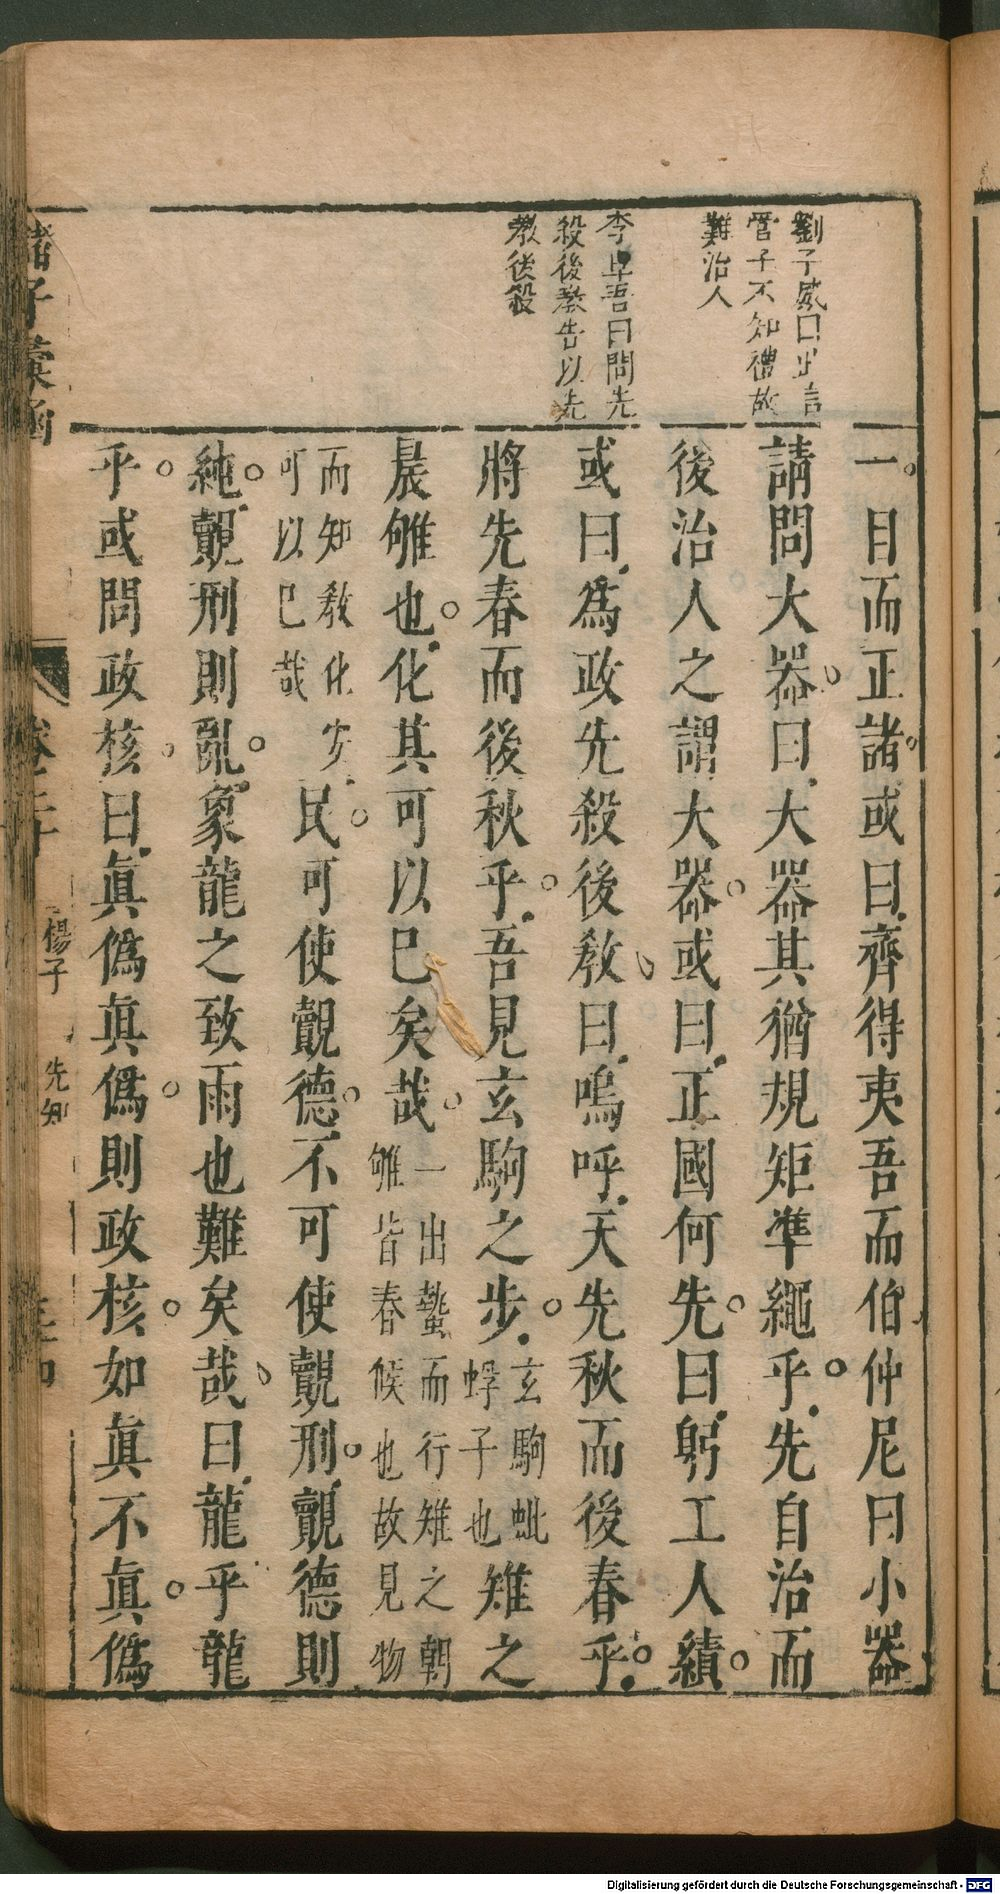 劉子威曰此言
管子不知禮故
難治人
李卓吾曰問先
殺後教告以先
教後殺
一目而正諸或曰齊得夷吾而伯仲尼曰小器
請問大器曰大器其猶規矩準繩乎先自治而
後治人之謂大器或曰正國何先曰躬工人績
或曰爲政先殺後教曰嗚呼天先秋而後春乎
將先春而後秋乎吾見玄駒之步玄駒蚍蜉子也雉之
晨雊也化其可以巳矣哉一出蟄而行雉之朝雊皆春候也故見物
而知教化可以巳哉安民可使覿德不可使覿刑覿德則
純覿刑則亂象龍之致雨也難矣哉曰龍乎龍
乎或問政核曰眞僞眞僞則政核如眞不眞僞
諸子彙函
卷二十
楊子
先知
Digitalisierung gefördert durch die Deutsche Forschungsgemeinschaft - DFG